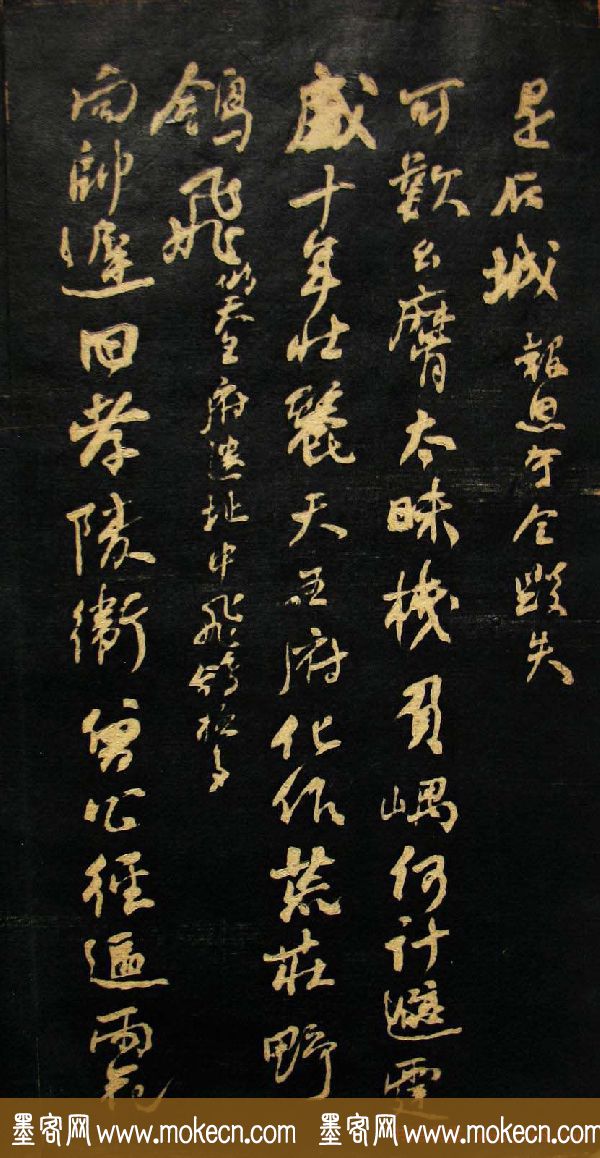 是石城 報恩寺今毀失
可歎么麼太昧機負嵎何計避霆
威十年壯麗天王府化作荒莊野
鴿飛 偽天王府遺址中飛鴿極多
向帥遲回孝陵衛曾公徑逼雨花
墨客网 www.mokecn.com 墨客网 www.mokecn.com